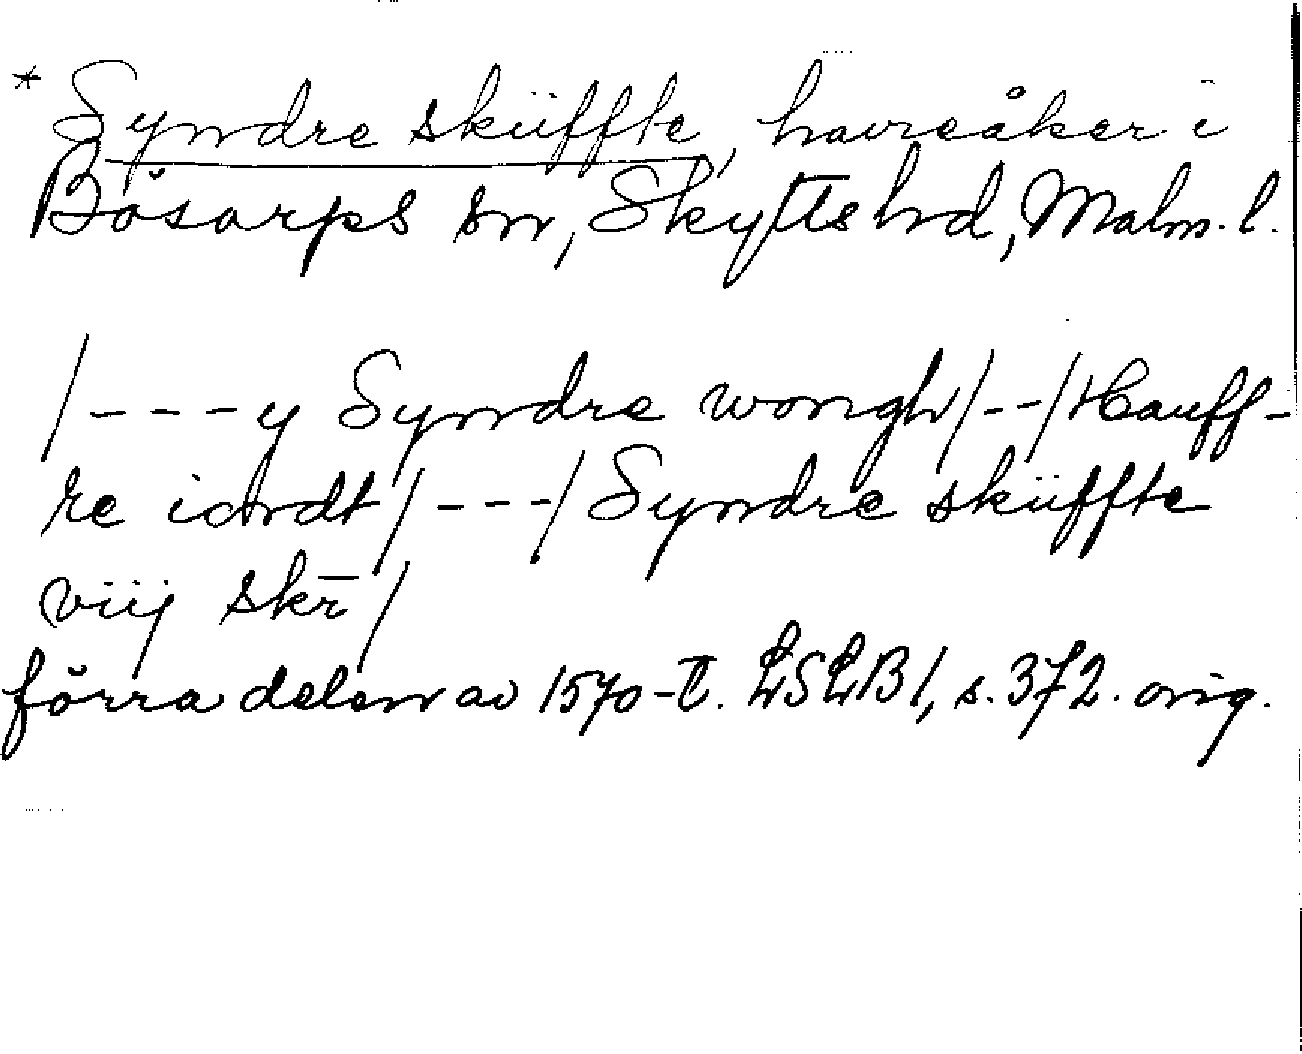 * Syndre skiffte, havreåker i
Bösarps sn, Skytts hd, Malm. l.
/---y Syndre wongh/--/Hauff-
re iordt/---/Syndre skiffte
viij skr̄/
förra delen av 1570-t. LSLB1, s. 372. orig.